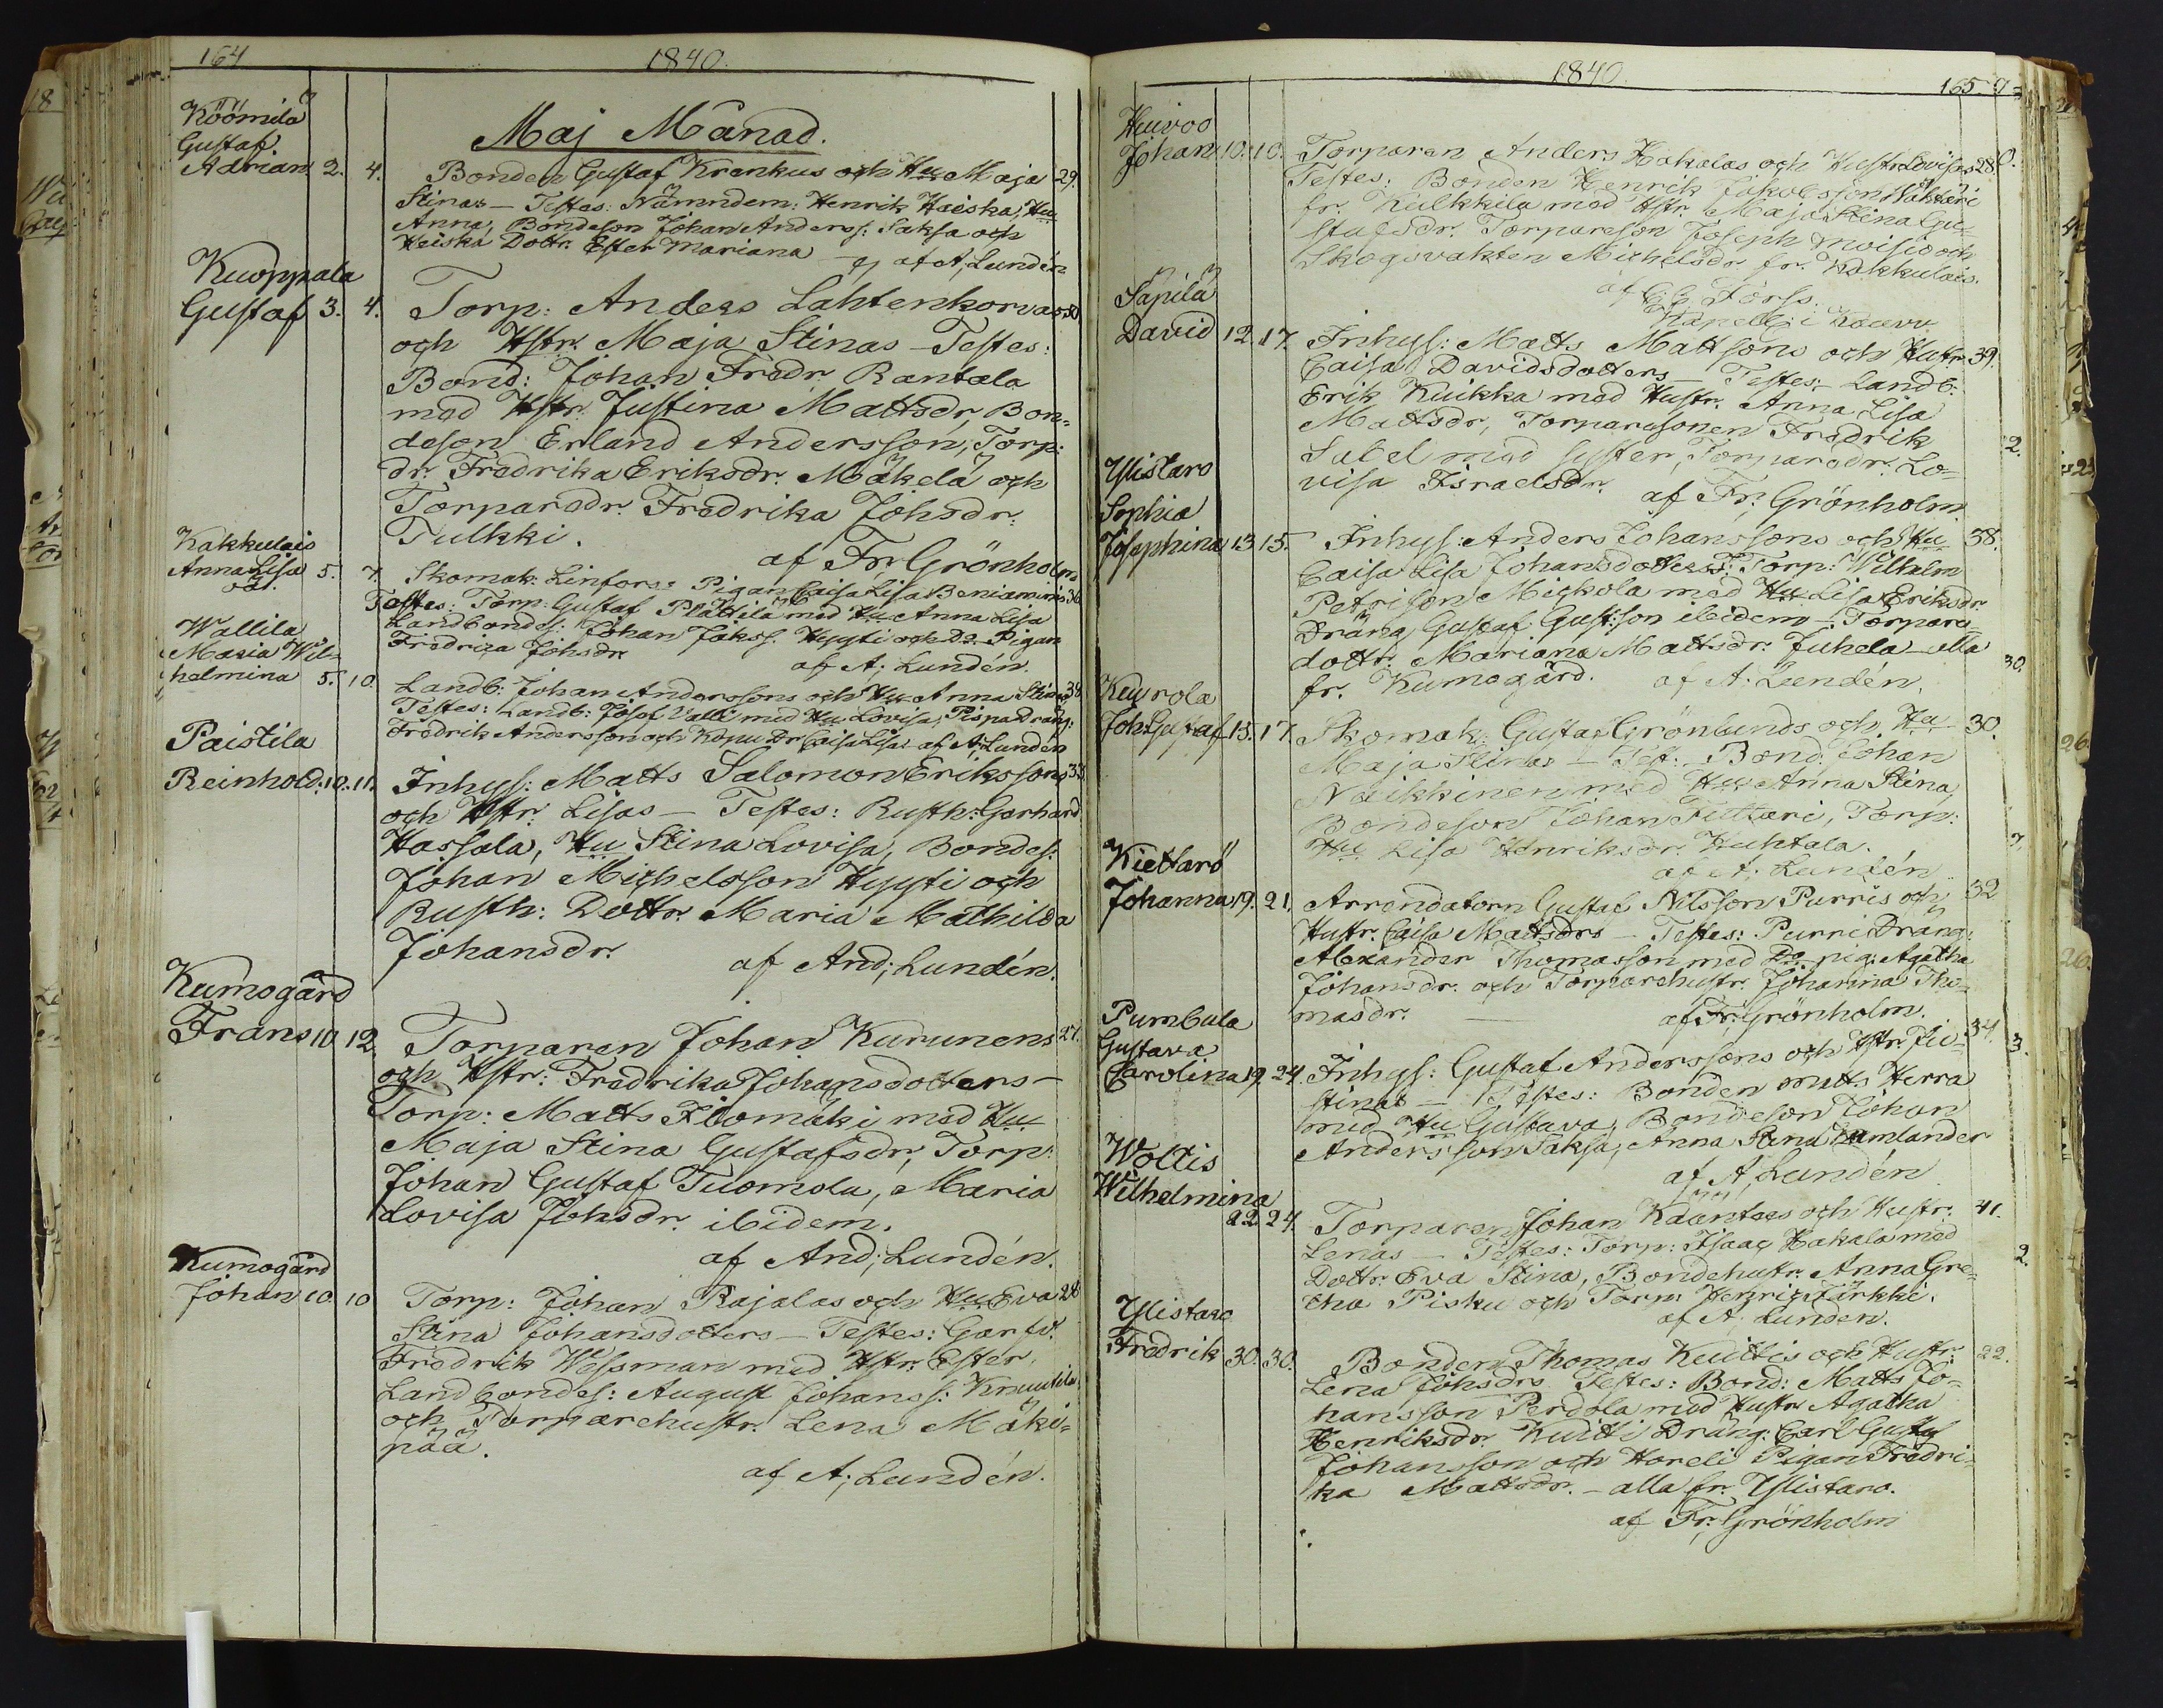 164
1840.
Maj Månad.
Köömilä
Gustaf
Adrian 2. 4. Bonden Gustaf Krenkus och Hu Maja 29.
Stinas – Testes: Nämndem: Henrik Heiska, Hu
Anna, Bondeson Johan Anderss: Saksa och
Heiska Dottr. Ester Mariana – af A; Lundén
Kuoppala
Gustaf 3. 4. Torp: Anders Lahtenkorvas
och Hstr. Maja Stinas – Testes:
Bond: Johan Fredr. Rantala
med Hstr. Justina Mattsdr, Bon-
deson Erland Andersson, Torp:
dr. Fredrika Eriksdr. Mäkelä och
Torparedr. Fredrika Johsdr.
Tulkki.
af Fr. Grönholm
Kakkulais
Anna Lisa
oä. 5. 7. Skomak: Linfors: Pigan Caisa Lisa Beniamins
Testes: Torp: Gustaf Plättilä med Hu Anna Lisa
Landbondes: Johan Jakss. Hyyti och Do Pigan
Fredrica Johsdr.
af A; Lundén.
Wallila
Maria Wil-
helmina 5. 10. Landb: Johan Anderssons och Hu Anna Stinas
Testes: Landb: Josef Valli med Hu Lovisa, Pispa Dräng:
Fredrik Andersson och Kopu Dr Caisa Lisa af A; Lundén
Paistila
Reinhold. 10. 11. Inhys: Matts Salomon Erikssons 33.
och Hstr. Lisas – Testes: Rusth: Gerhard
Hassala, Hu Stina Lovisa, Bondes:
Johan Michelsson Hyyti och
Rusth: Dottr. Maria Mathilda
Johansdr.
af And; Lundén.
Kumogård
Frans 10. 12. Torparen Johan Kurunens 27.
och Hstr: Fredrika Johansdotters –
Torp: Matts Ilomäki med Hu
Maja Stina Gustafsdr, Torp:
Johan Gustaf Tuomola, Maria
Lovisa Johsdr. ibidem.
af And; Lundén.
Kumogård
Johan 10. 10 Torp: Johan Rajalas och Hu Eva 28
Stina Johansdotters – Testes: Garfv.
Fredrik Wessman med Hstr. Ester,
Landbondes: August Johanss: Knuutila
och Torparehustr. Lena Mäki-
pää.
af A; Lundén.
1840.
165
Huivoo
Johan 10. 10. Torparen Anders Hakalas och Hustr Lovisas 28.
Testes: Bonden Henrik Jakobsson Vähtäri
fr. Kulkkila med Hstr. Maja Stina Gu-
stafsdr. Torpareson Joseph och
Skogsvakten Michelsdr. fr. Kakkulais.
af Forss.
Kapell: i
Säpilä
David 12. 17. Inhys: Matts Mattsons och Hustr. 39.
Caisa Davidsdotters – Testes: Landb:
Erik Kuikka med Hustr. Anna Lisa
Mattsdr, Torparesonen Fredrik
Sabel med syster, Torparedr. Lo-
visa Israelsdr.
af Fr; Grönholm
Ylistaro
Sophia
Josephina 13 15. Inhys: Anders Johanssons och Hu 38.
Caisa Lisa Johansdotters T: Torp: Wilhelm
Petrison Mickola med Hu Lisa Eriksdr.
Dräng Gustaf Gustsson ibidem – Torpare-
dottr. Mariana Mattsdr. Juhela – alla
fr. Kumogård.
af A. Lundén.
Keurola
Joh: Gustaf 13. 17. Skomak: Gustaf Grönlunds och Hu 30.
Maja Stinas – Test: Bond. Johan
Naikkinen med Hu Anna Stina,
Bondeson Johan Tuttari, Torp:
Hu Lisa Henriksdr. Huhtala.
af A; Lundén
Kiettarö
Johanna 19. 21. Arrendatorn Gustaf Nilsson Purris och 32
Hustr. Caisa Mattsdrs – Testes: Purri Dräng:
Alexander Thomasson med Do pig: Agatha
Johansdr. och Torparehustr. Johanna Tho-
masdr.
af Fr. Grönholm.
Pumbula
Gustava
Carolina 19. 24. Inhys: Gustaf Anderssons och Hstr. Ju- 34.
stinas – Testes: Bonden Matts Herra
med Hu Gustava, Bondeson Johan
Andersson Saksa, Anna Stina Tamlander
af A; Lundén
Woltis
Wilhelmina
22 24. Torparen Johan Kääntäs och Hustr. 41.
Lenas – Testes: Torp: Isaac Hakala med
Dottr. Eva Stina, Bondehustr. Anna Gre-
tha Pisku och Torp: Henric Jirkki.
af A; Lunden.
Ylistaro
Fredrik 30. 30. Bonden Thomas Keuttis och Hustr. 22.
Lena Johsdrs Testes: Bond: Matts Jo-
hansson Perdola med Hustr Agatha
Henriksdr. Kuitti Dräng: Carl Gustaf
Johansson och Horeli Pigan Fredri-
ka Mattsdr. – alla fr. Ylistaro.
af Fr; Grönholm